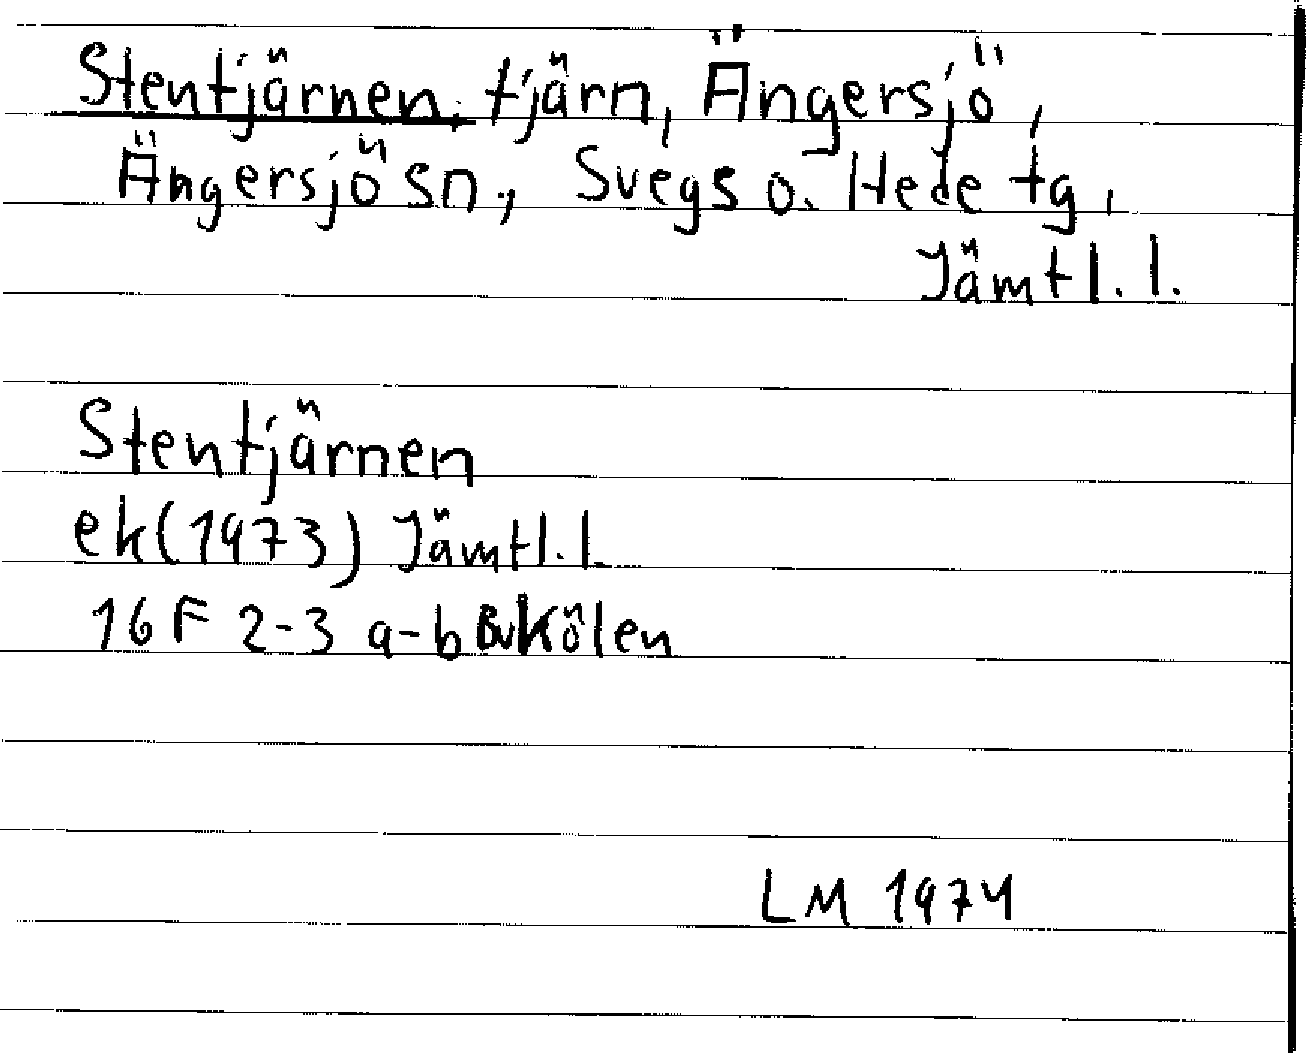 Stentjärnen, tjärn, Ängersjö,
Ängersjö sn., Svegs o. Hede tg,
Jämtl. l.
Stentjärnen
ek(1973) Jämtl. l.
16 F 2-3 a-b Kölen
LM 1974